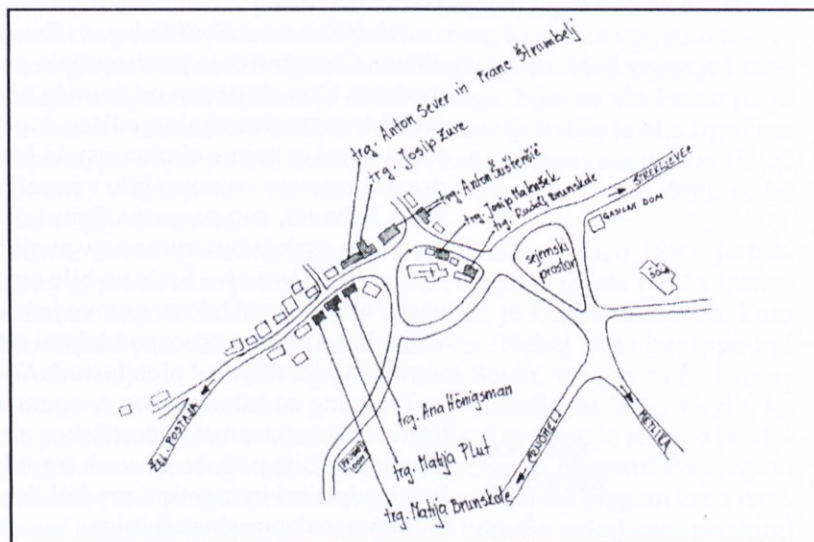 trg. Anton Seier in Franc Štrambelj
trg. Josip Zure
trg. Anton Šušteršič
trg. Josip Makovšek
trg. Rudolf Brunskole
STREKLJEVCA
GASILNI DOM
sejemski prostor
ŠOLA
ŽEL. POSTAJA
trg. Ana Hönigsman
trg. Matija Plut
trg. Matija Brunskole
DOM
KRVAVČJI
METLIKA